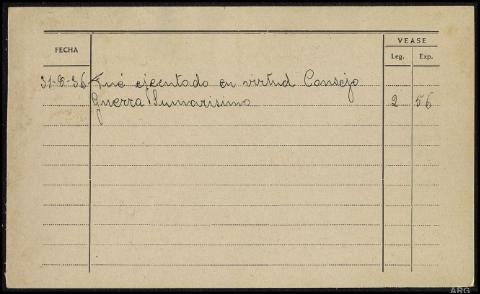 VEASE
FECHA Leg. Exp.
31-8-36 Fué ejecutado en virtud Consejo
Guerra Sumarisimo 2 56
ARG